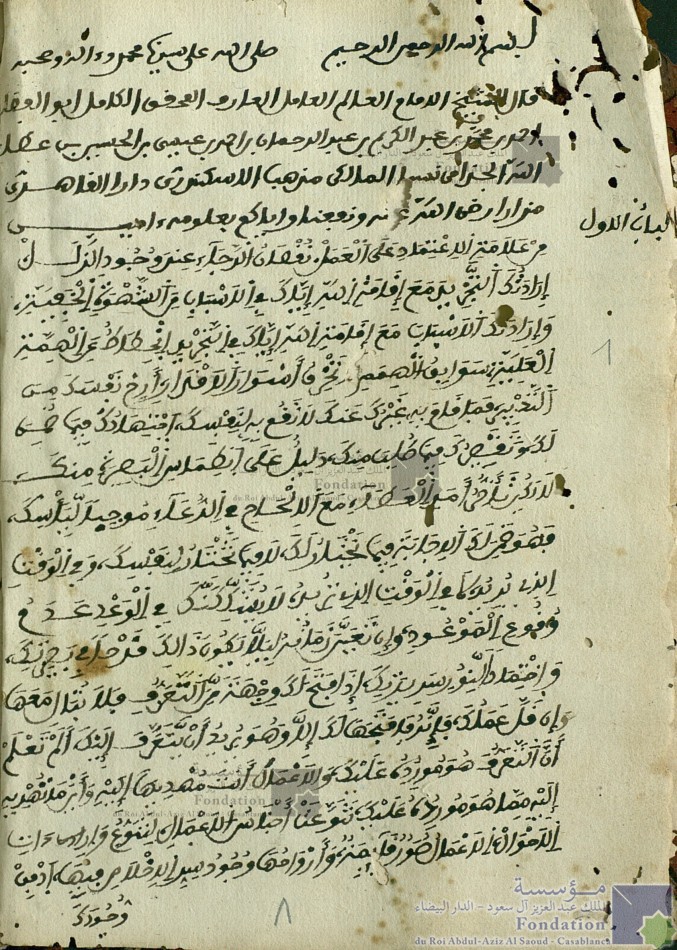 بسم الله الرحمن الرحيم صلى الله على سيدنا محمد وءاله وصحبه
قال الشيخ الامام العالم العامل العارف المحقق الكامل ابو الفضل
احمد بن محمد بن عبد الكريم بن عبد الرحمان بن احمد بن عيسى بن الحسين بن عطاء
الله الجذامي نسبا المالكي مذهبا الاسكندري دارا القاهري
مزارا رضي الله عنه ونفعنا واياكم بعلومه ءامين
الباب الاول
مِنْ عَلَامَةِ الِاعْتِمَادِ عَلَى الْعَمَلِ نُقْصَانُ الرَّجَاءِ عِنْدَ وُجُودِ الزَّلَلْ
إِرَادَتُكَ التَّجْرِيدَ مَعَ إِقَامَةِ اللَّهِ إِيَّاكَ فِي الْأَسْبَابِ مِنَ الشَّهْوَةِ الْخَفِيَّةِ،
وَإِرَادَتُكَ الْأَسْبَابَ مَعَ إِقَامَةِ اللَّهِ إِيَّاكَ فِي التَّجْرِيدِ انْحِطَاطٌ عَنِ الْهِمَّةِ
الْعَلِيَّةِ، سَوَابِقُ الْهِمَمِ لَا تَخْرِقُ أَسْوَارَ الْأَقْدَارِ، أَرِحْ نَفْسَكَ مِنَ
التَّدْبِيرِ، فَمَا قَامَ بِهِ غَيْرُكَ عَنْكَ لَا تَقُمْ بِهِ لِنَفْسِكَ، اجْتِهَادُكَ فِيمَا ضُمِنَ
لَكَ وَتَقْصِيرُكَ فِيمَا طُلِبَ مِنْكَ دَلِيلٌ عَلَى انْطِمَاسِ الْبَصِيرَةِ مِنْكَ
لَا يَكُنْ تَأَخُّرُ أَمَدِ الْعَطَاءِ مَعَ الْإِلْحَاحِ فِي الدُّعَاءِ مُوجِباً لِيَأْسِكَ،
فَهُوَ ضَمِنَ لَكَ الْإِجَابَةَ فِيمَا يَخْتَارُ لَكَ، لَا فِيمَا تَخْتَارُ لِنَفْسِكَ، وَفِي الْوَقْتِ
الَّذِي يُرِيدُ لَا فِي الْوَقْتِ الَّذِي تُرِيدُ، لَا يُشَكِّكَنَّكَ فِي الْوَعْدِ عَدَمُ
وُقُوعِ الْمَوْعُودِ، وَإِنْ تَعَيَّنَ زَمَانُهُ لِئَلَّا يَكُونَ ذَالِكَ قَدْحاً فِي بَصِيرَتِكَ،
وَإِخْمَاداً لِنُورِ سَرِيرَتِكَ، إِذَا فَتَحَ لَكَ وِجْهَةً مِنَ التَّعَرُّفِ فَلَا تُبَالِ مَعَهَا
وَإِنْ قَلَّ عَمَلُكَ، فَإِنَّهُ مَا فَتَحَهَا لَكَ إِلَّا وَهُوَ يُرِيدُ أَنْ يَتَعَرَّفَ إِلَيْكَ، أَلَمْ تَعْلَمْ
أَنَّ التَّعَرُّفَ هُوَ مُورِدُهُ عَلَيْكَ، وَالْأَعْمَالُ أَنْتَ مُهْدِيهَا إِلَيْهِ، وَأَيْنَ مَا تُهْدِيهِ
إِلَيْهِ مِمَّا هُوَ مُورِدُهُ عَلَيْكَ، تَنَوَّعَتْ أَجْنَاسُ الْأَعْمَالِ لِتَنَوُّعِ وَارِدَاتِ
الْأَحْوَالِ، الْأَعْمَالُ صُوَرٌ قَائِمَةٌ، وَأَرْوَاحُهَا وُجُودُ سِرِّ الْإِخْلَاصِ فِيهَا، ادْفِنْ
وُجُودَكَ
مؤسسة
الملك عبد العزيز آل سعود - الدار البيضاء
Fondation
du Roi Abdul-Aziz Al Saoud - Casablanca